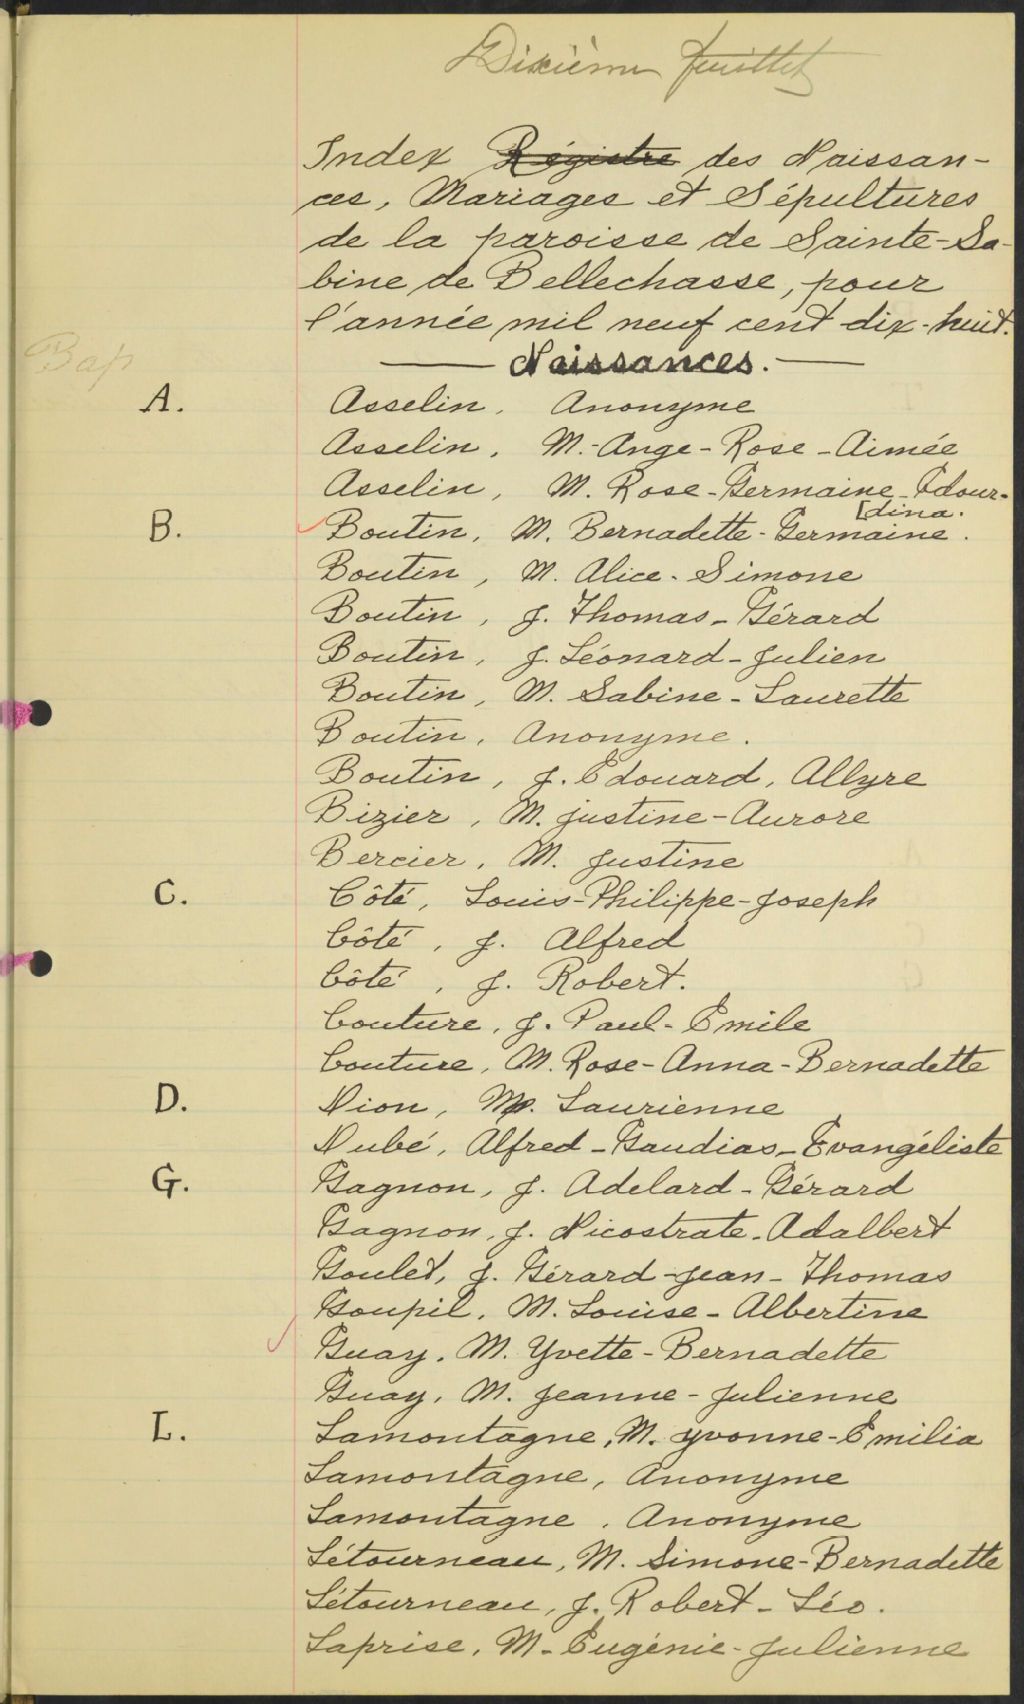 Dixième feuillet
Index Régistre des Naissan-
ces, Mariages et Sépultures
de la paroisse de Sainte-Sa-
bine de Bellechasse, pour
l'année mil neuf cent dix-huit.
Bap
Naissances.
A. Asselin, Anonyme
Asselin, M.-Ange-Rose-Aimée
Asselin, M. Rose-Germaine-Edour-
[dina.
B. Boutin, M. Bernadette-Germaine.
Boutin, M. Alice-Simone
Boutin, J. Thomas-Gérard
Boutin, J. Léonard-Julien
Boutin, M. Sabine-Laurette
Boutin, Anonyme.
Boutin, J. Edouard, Allyre
Bizier, M. Justine-Aurore
Bercier, M. Justine
C. Côté, Louis-Philippe-Joseph
Côté, J. Alfred
Côté, J. Robert.
Couture, J. Paul-Emile
Couture, M. Rose-Anna-Bernadette
D. Dion, M. Laurienne
Dubé, Alfred-Gaudias-Evangéliste
G. Gagnon, J. Adelard-Gérard
Gagnon, J. Nicostrate-Adalbert
Goulet, J. Gérard-Jean-Thomas
Goupil, M. Louise-Albertine
Guay, M. Yvette-Bernadette
Guay, M. Jeanne-Julienne
L. Lamontagne, M. Yvonne-Emilia
Lamontagne, Anonyme
Lamontagne, Anonyme
Létourneau, M. Simone-Bernadette
Létourneau, J. Robert-Léo.
Laprise, M.-Eugénie-Julienne